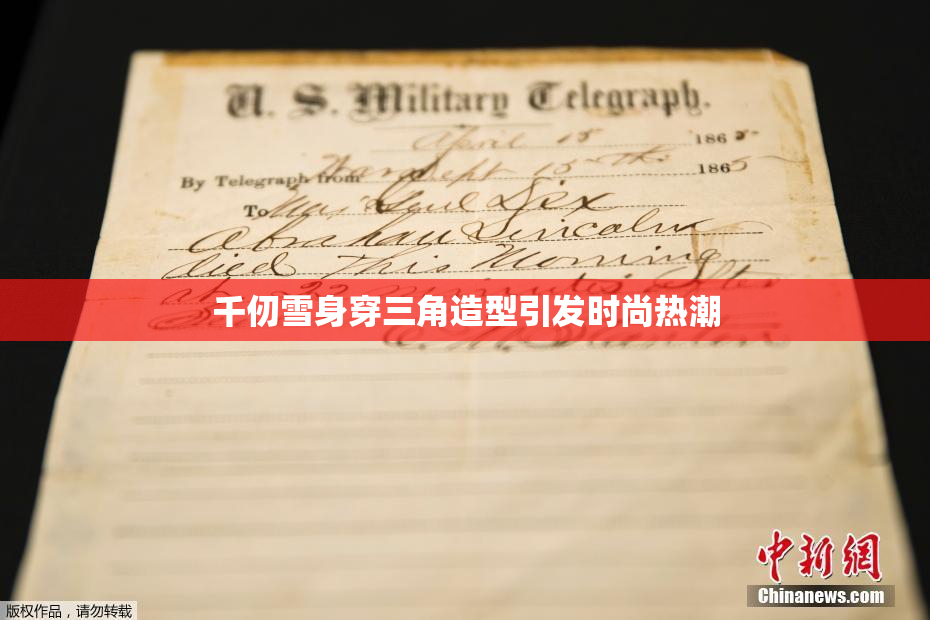 U. S. Military Telegraph.
April 15 1865
By Telegraph from War Dept 15th 1865
To Maj Genl Dix
Abraham Lincoln
died This Morning
at 22 minutes after
千仞雪身穿三角造型引发时尚热潮
E. M. Stanton
中新网
Chinanews.com
版权作品，请勿转载